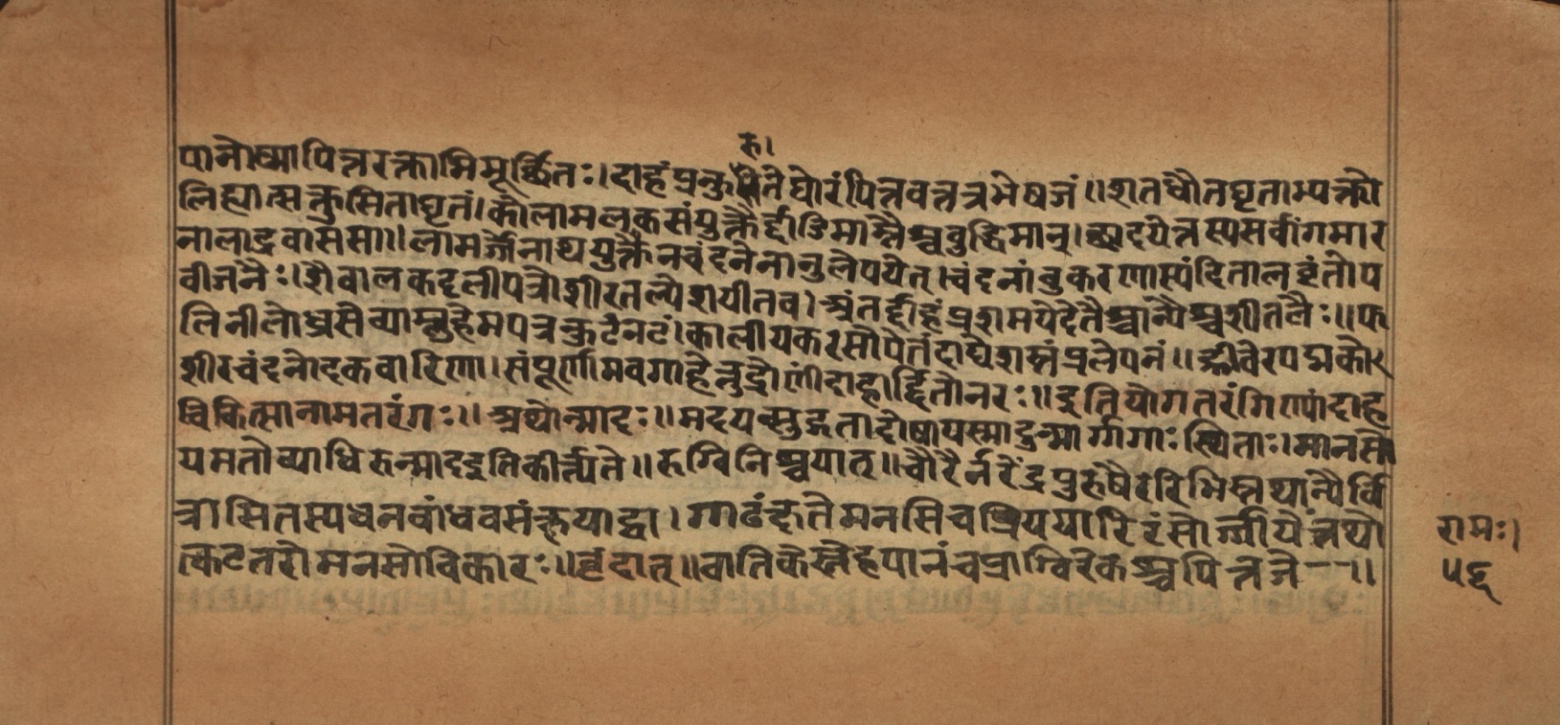 रु।
पानोष्मापित्तरक्ताभिमूर्छितः।दाहंप्रकुरुतेघोरंपित्तवत्तत्रभेषजं॥शतधौतघृताभ्यक्तो
लिह्यात्सक्तुसिताघृतं।कोलामलकसंयुक्तैर्दाडिमाम्लैश्चबुद्धिमान्।छादयेत्तस्यसर्वांगमार
नालाद्रवाससा॥लामज्जेनाथयुक्तेनचंदनेनानुलेपयेत्।चंदनांबुकरणास्पंदितालवृंतोप
वीजनैः।शैवालकदलीपत्रोशीरतल्पेशयीतव।अंतर्दाहंप्रशमयेदेतैश्चान्यैश्चशीतलैः॥फ
लिनीलोध्रसेव्याम्बुहेमपत्रकुटंनटं।कालीयकरसोपेतंदाघेशस्तंप्रलेपनं॥ह्रीवेरपद्मको
शीरचंदनोदकवारिणा।संपूर्णामवगाहेत्तुद्रोणींदाहार्द्दितोनरः॥इतियोगतरंगिण्यांदाह
चिकित्सानामतरंगः॥अथोन्मादः॥मदयन्त्युद्गतादोषायस्मादुन्मार्गगाःस्थिताः।मानसो
यमतोव्याधिरुन्मादइतिकीर्त्त्यते॥रुग्विनिश्चयात्॥चौरैर्नरेंद्रपुरुषैररिभिस्तथान्यैर्वि
त्रासितस्यधनबांधवसंक्षयाद्वा।गाढंक्षतेमनसिचप्रिययारिरंसोर्ज्जायेतथो
त्कटतरोमनसोविकारः॥वृंदात्॥वातिकेस्नेहपानंचप्राग्विरेकश्चपित्तजे--॥
रामः।
५६